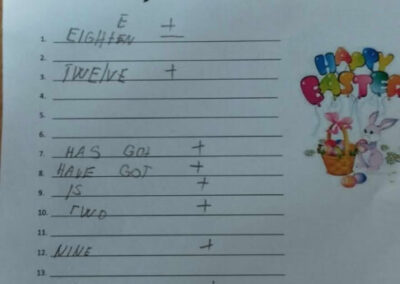 E +
1. EIGHTEN
2.
3. TWELVE +
4.
5.
6.
7. HAS GOT +
8. HAVE GOT +
9. IS +
10. TWO +
11.
12. NINE +
13.
HAPPY
EASTER